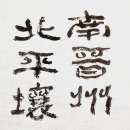 南晉州
北平壤